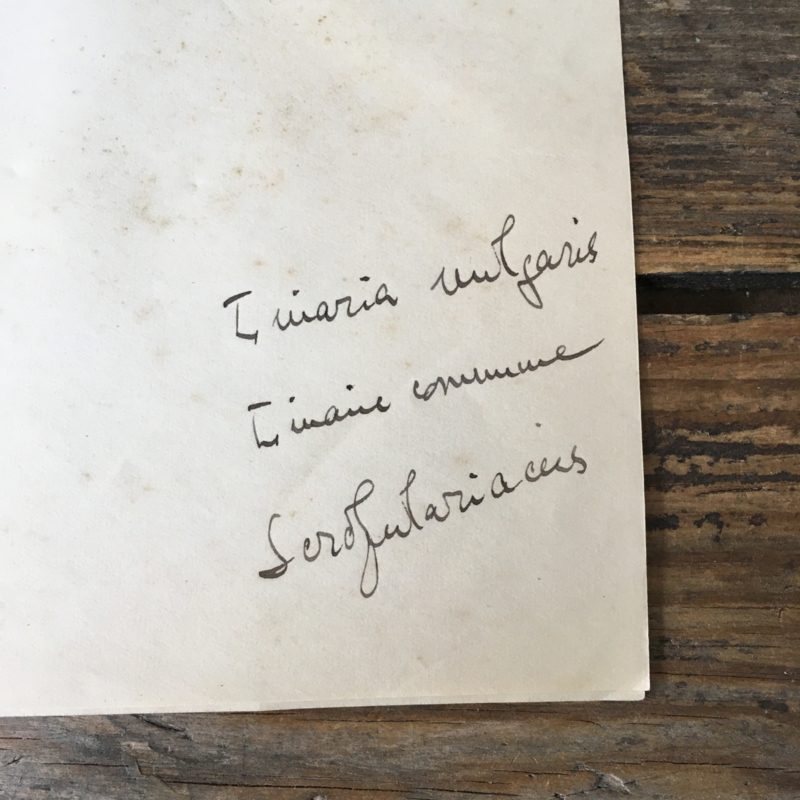 Linaria vulgaris
Linaire commune
Scrofulariacées